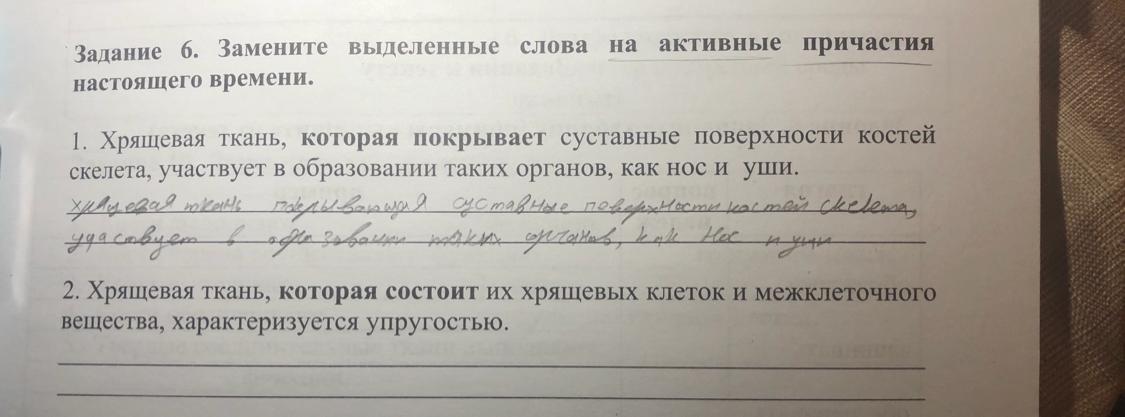 Задание 6. Замените выделенные слова на активные причастия
настоящего времени.
1. Хрящевая ткань, которая покрывает суставные поверхности костей
скелета, участвует в образовании таких органов, как нос и уши.
хрящевая ткань покрывающая суставные поверхности костей скелета,
удаствует в образовании таких органов, как нос и уши
2. Хрящевая ткань, которая состоит их хрящевых клеток и межклеточного
вещества, характеризуется упругостью.